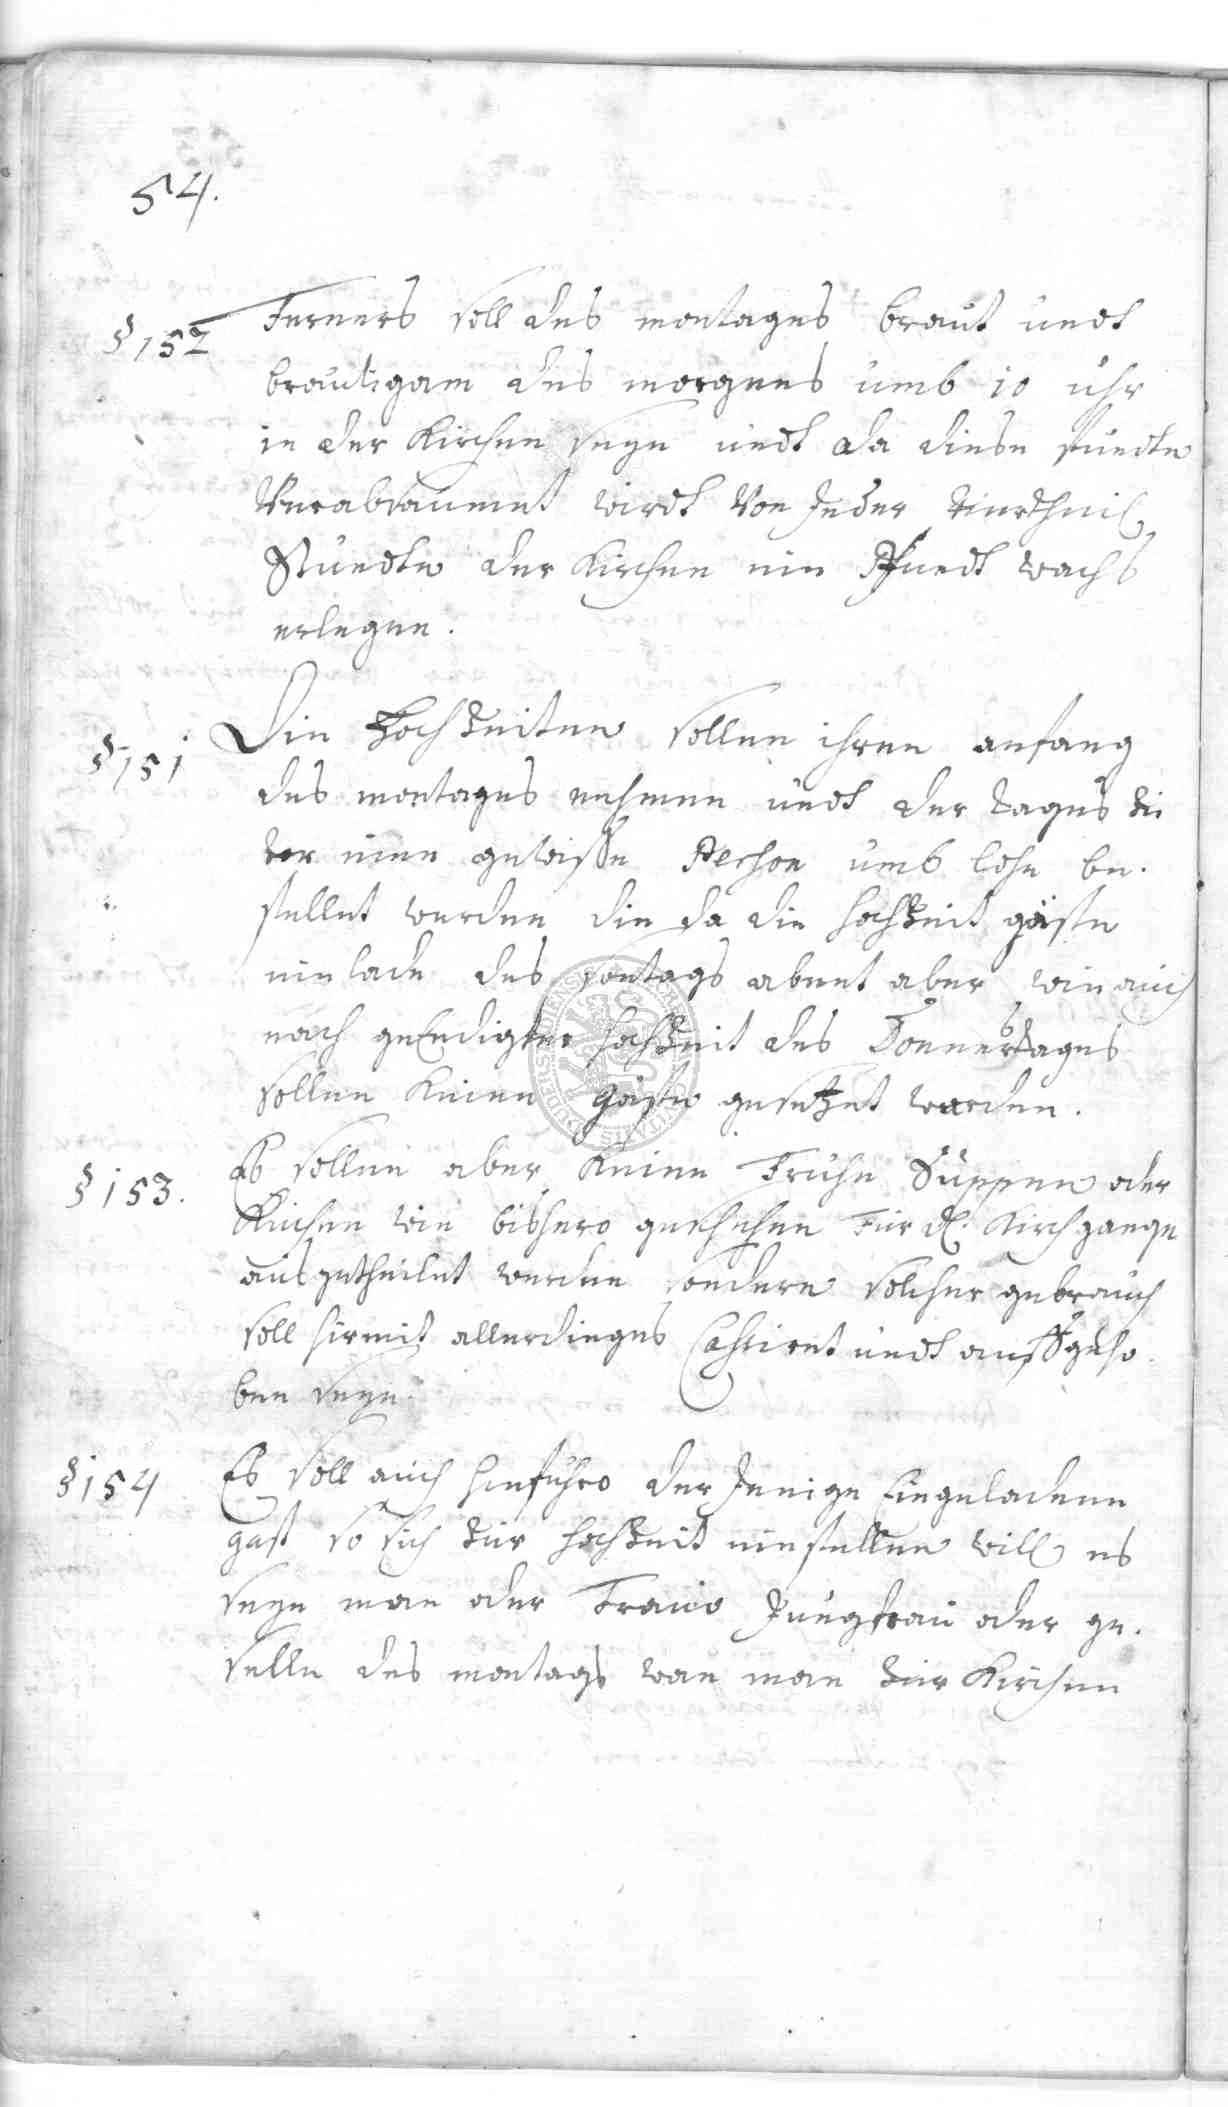 54.
§ 152 Ferners soll des montages braut undt
breutigam des morgens umb 10 uhr
in der Kirchen seyn undt da diese stundte
Verabsaumet wirdt Von Jeder
Stundte der Kirchen ein Pfundt wachs
erlegen.
§ 151 Die Hochzeiten sollen ihren anfang
des montages nehmen undt der tages zu
vor eine gewisse Person umb lohn be.
stellet werden die da die hochzeit gäste
einlade des sontags abent aber wie auch
nach geEndigter hochzeit des Donnerstages
sollen keine Gäste gesetzet werden.
§ 153. Es sollen aber keine Fruhe Suppen oder
Kuchen wie bishero geschehen Fur d. Kirchgange
ausgetheilet werden sondern solcher gebrauch
soll hirmit allerdinges Cassiret undt auffgeho.
ben seyn.
§ 154 Es soll auch hinfuhro der Jenige Eingeladene
gast so sich zur hochzeit einstellen will es
seye man oder Frauw Jungfrau oder ge.
selle des montags wan man zur Kirchen